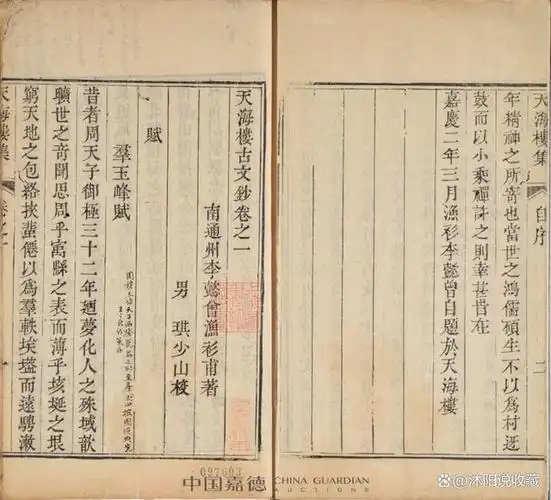 天海樓集 自序 二
年精神之所寄也當世之鴻儒碩生不以為村迓
鼓而以小乘禪訶之則幸甚旹在
嘉慶二年三月漁衫李懿曾自題於天海樓
天海樓古文鈔卷之一
南通州李懿曾漁衫甫著
男 琪少山校
賦
羣玉峰賦
昔者周天子御極三十二年廻夢化人之殊域歆
曠世之奇聞思周乎寓縣之表而薄乎垓埏之垠
窮天地之包絡挾蜚僊以為羣軼埃壒而遠騁漱
天海樓集 卷之一
097603
中国嘉德 CHINA GUARDIAN AUCTIONS
@沐阳说收藏